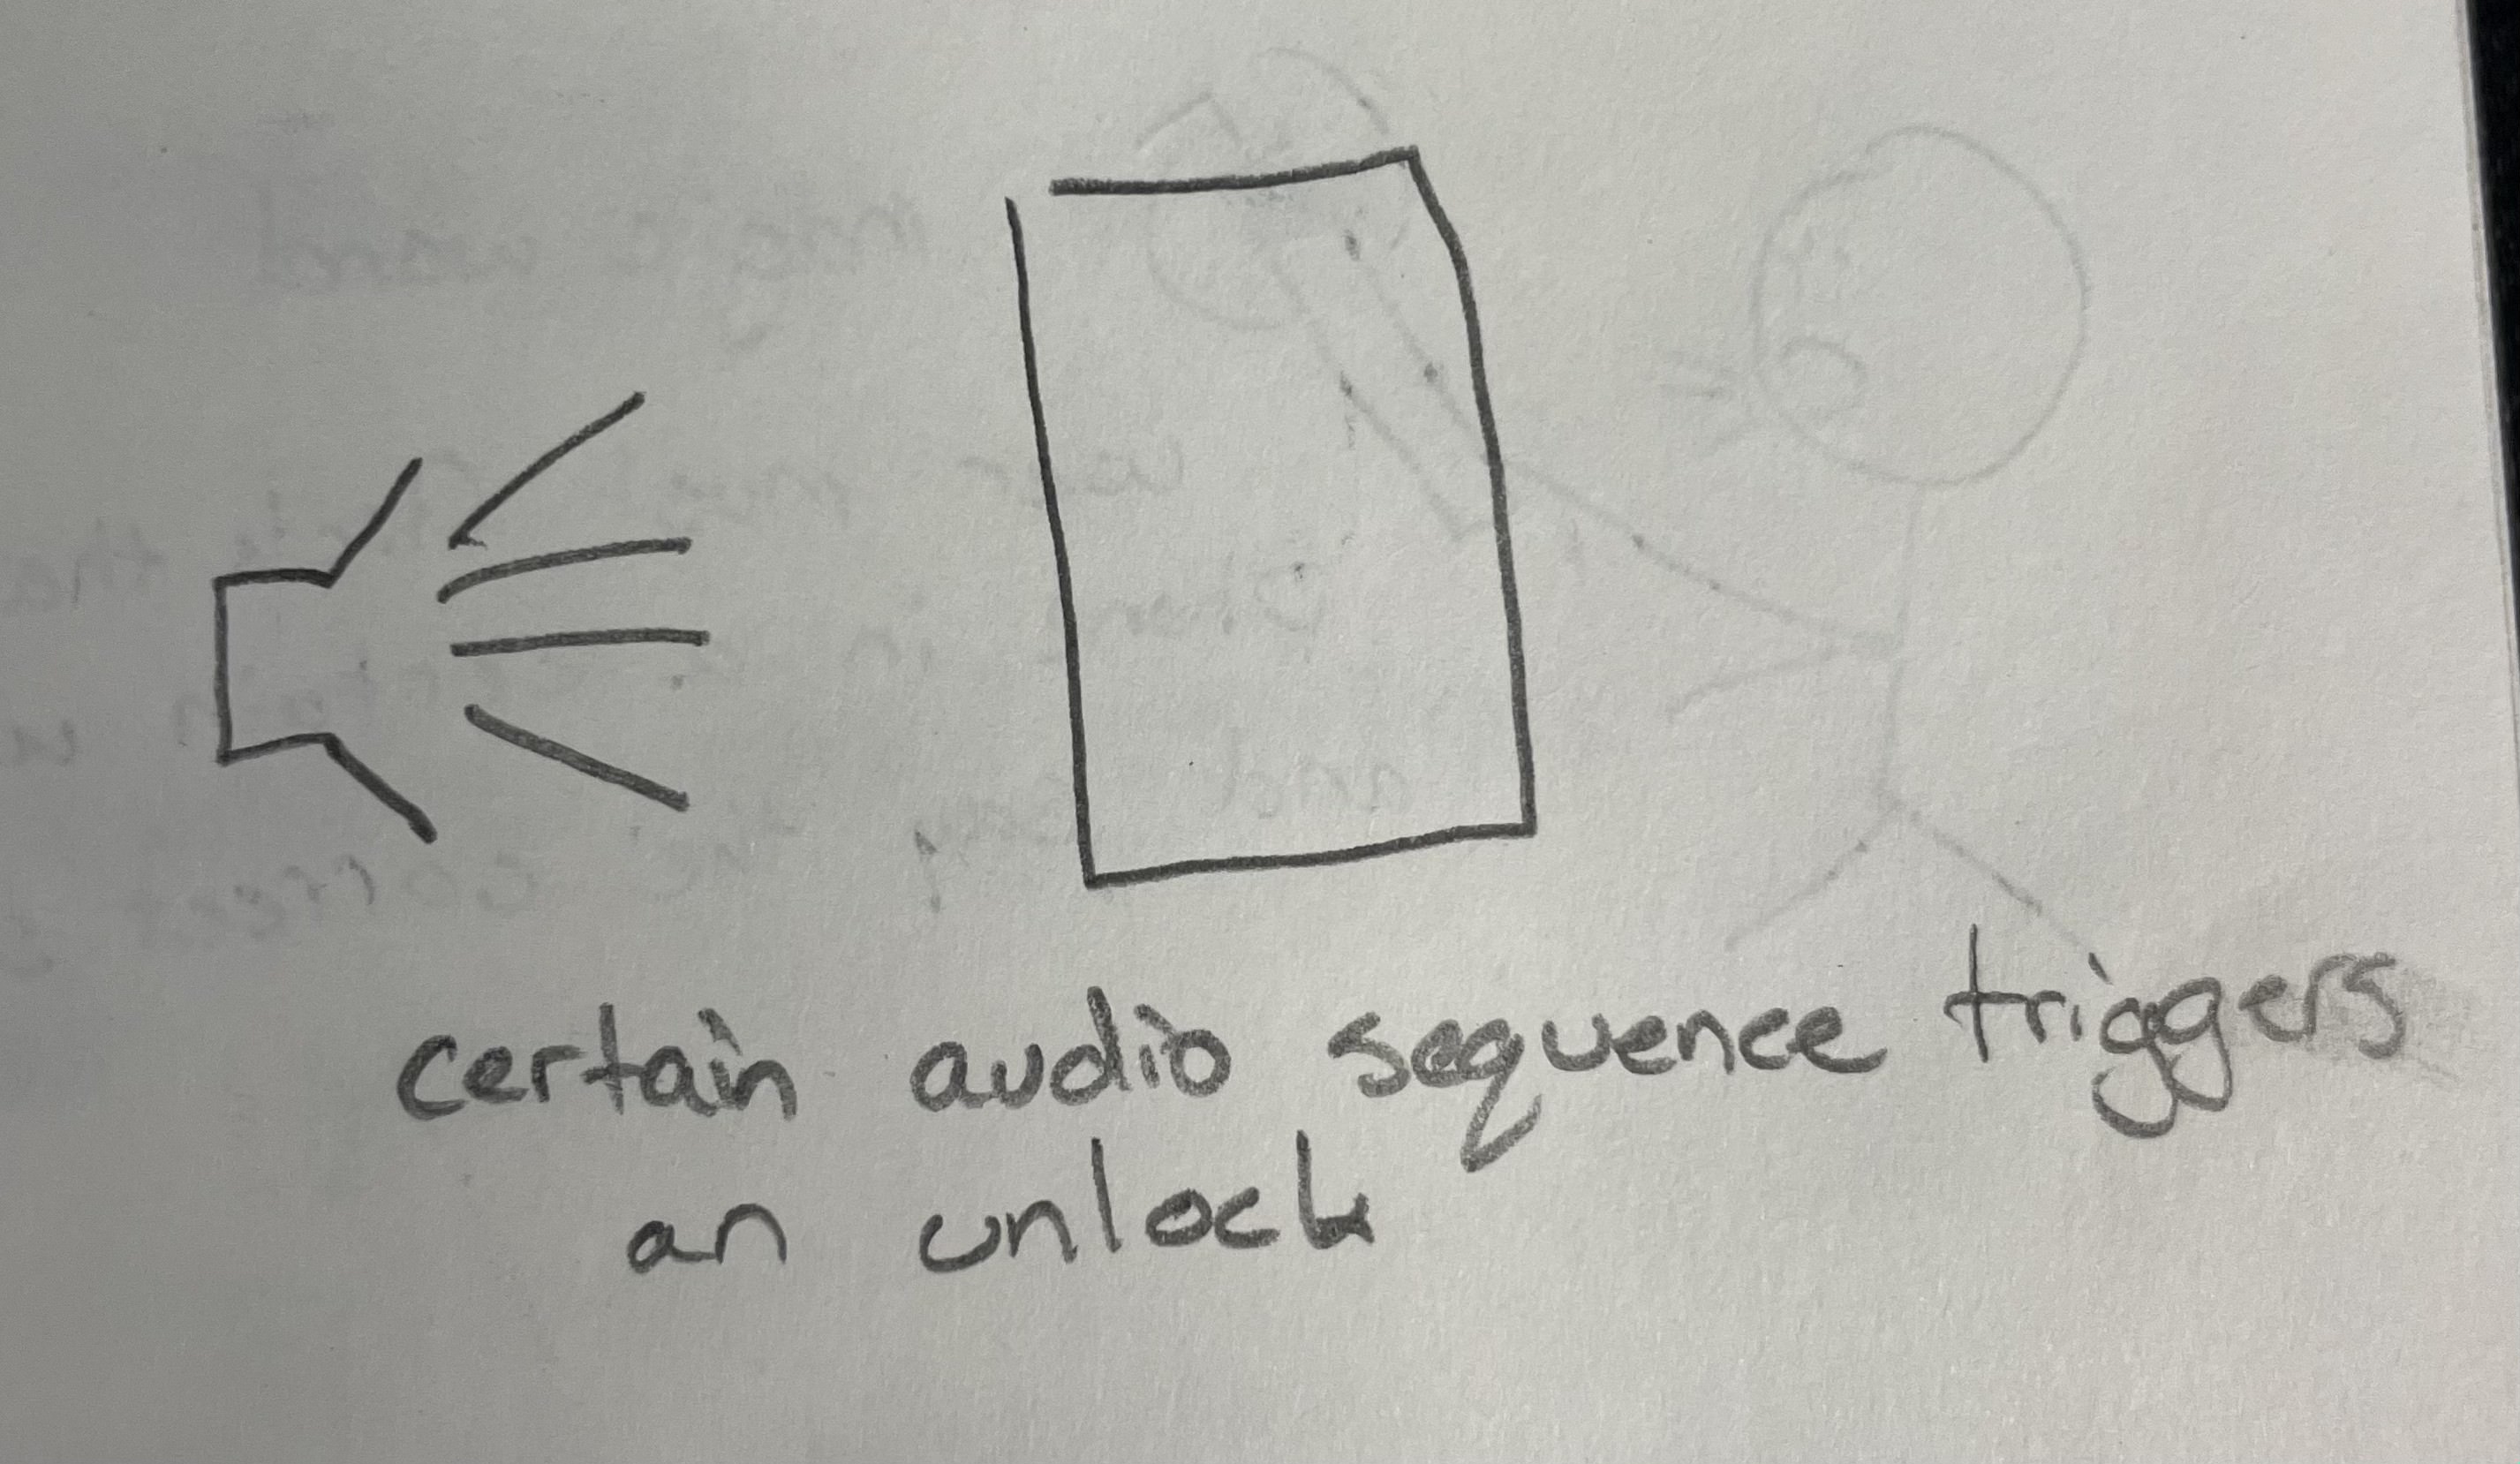 certain audio sequence triggers
an unlock